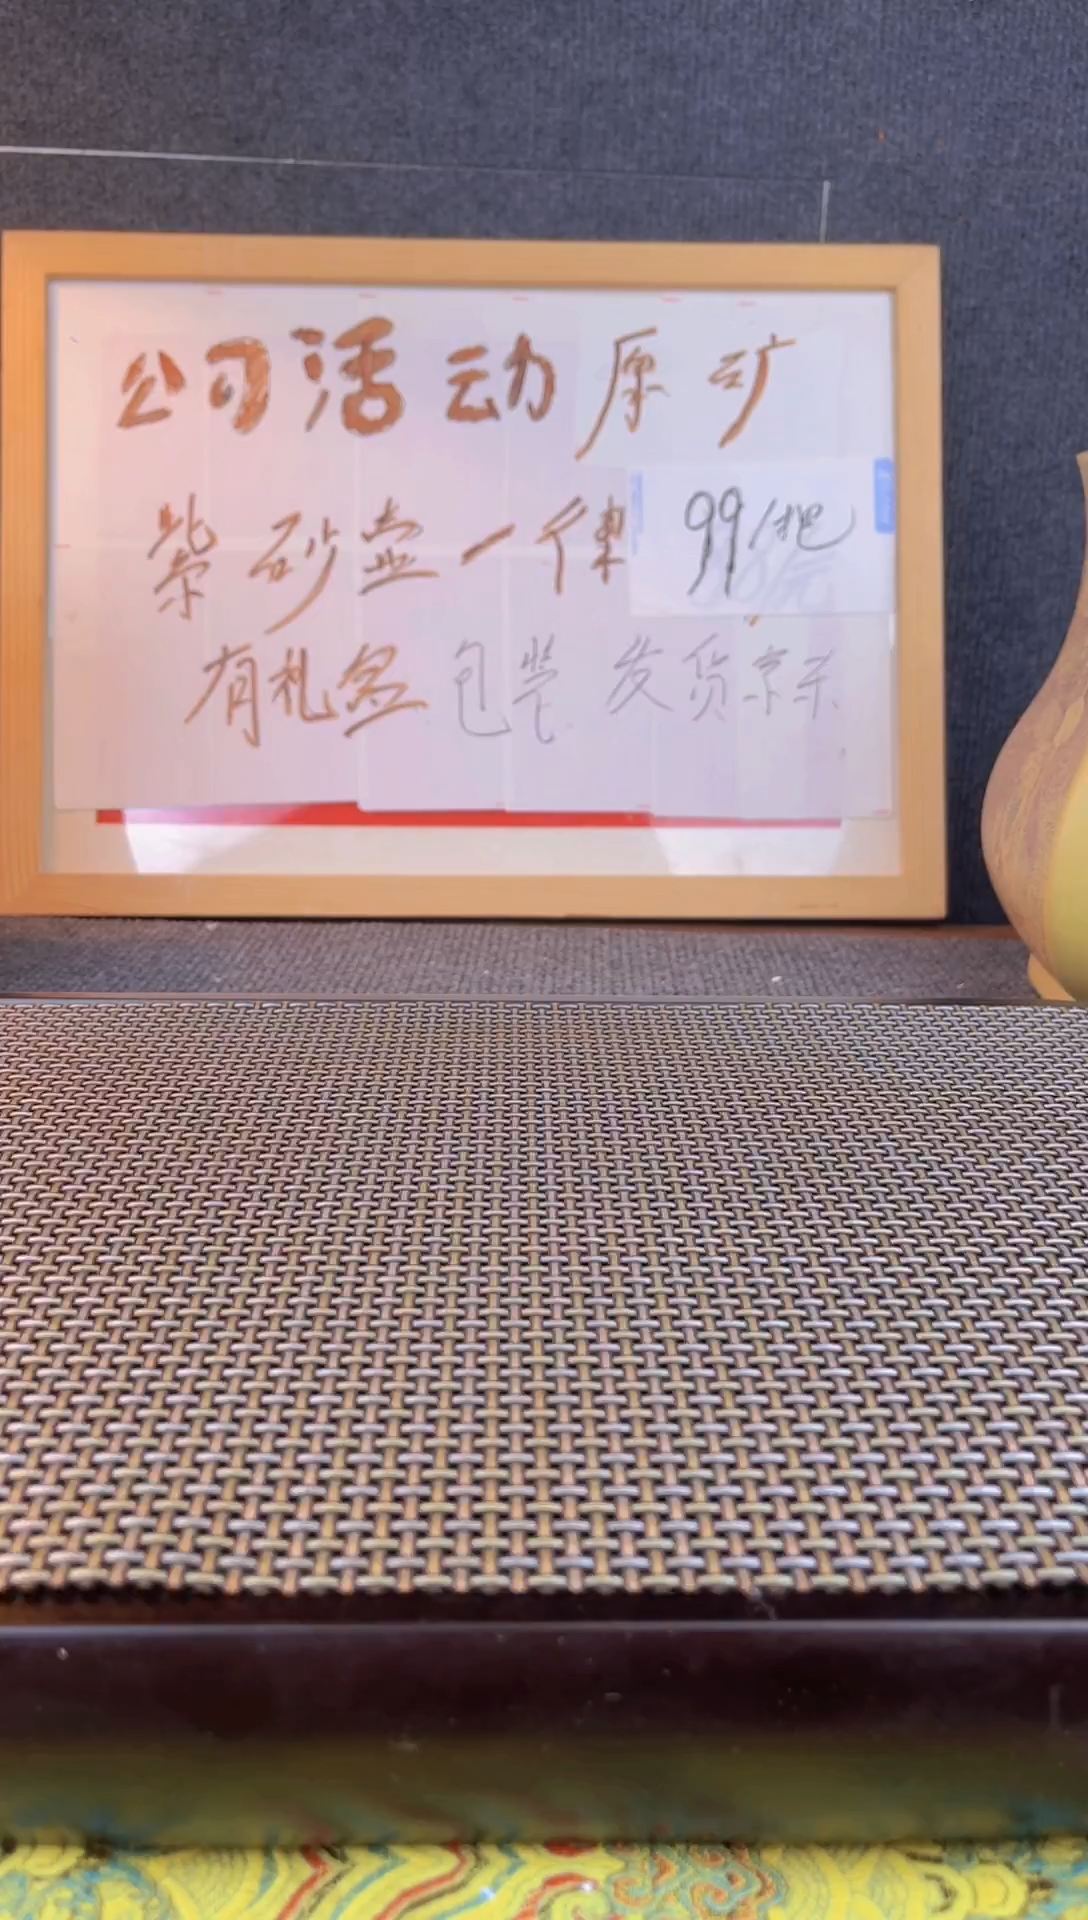 公司活动原矿
紫砂壶一律99/把
有礼盒包装 发货京东